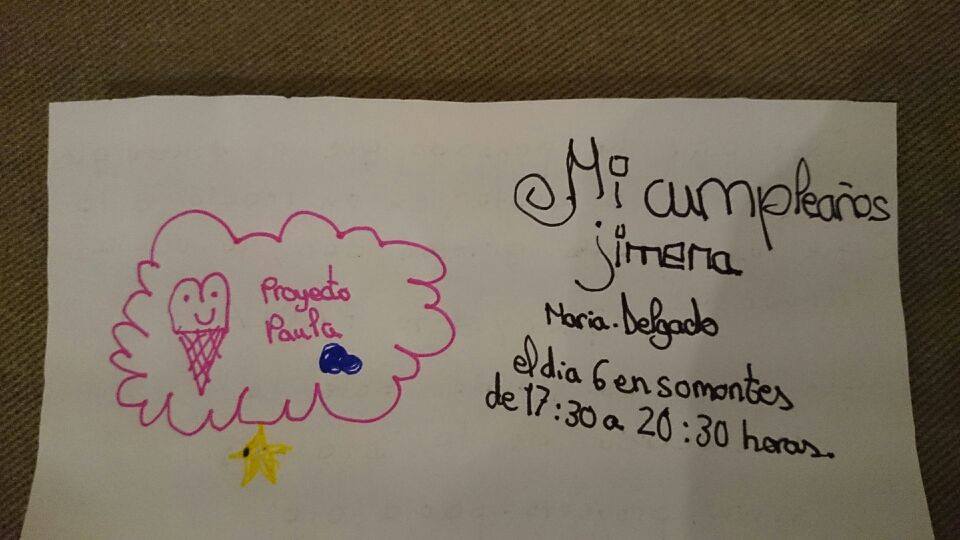 Proyecto
Paula
Mi cumpleaños
jimena
Maria. Delgado
el dia 6 en somontes
de 17:30 a 20:30 horas.